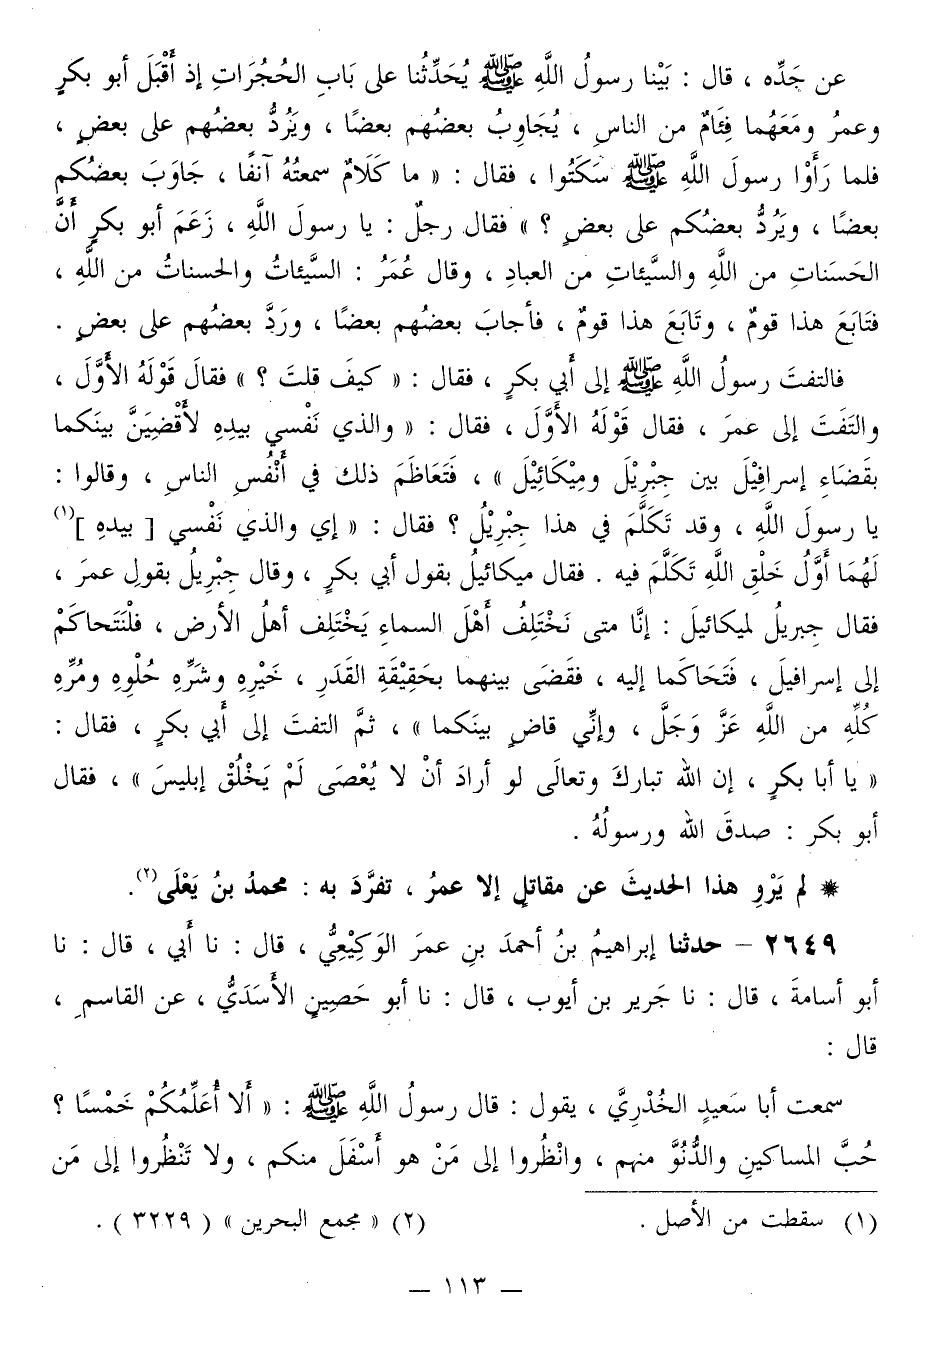 عن جَدِّه ، قال : بَيْنا رسولُ اللَّهِ ﷺ يُحَدِّثُنا على بَابِ الحُجُرَاتِ إذ أَقْبَلَ أبو بكرٍ
وعمرُ ومَعَهُما فِئَامٌ من الناسِ ، يُجَاوِبُ بعضُهم بعضًا ، ويَرُدُّ بعضُهم على بعضٍ ،
فلما رَأَوْا رسولَ اللَّهِ ﷺ سَكَتُوا ، فقال : « ما كَلَامٌ سمعتُهُ آنفًا ، جَاوَبَ بعضُكم
بعضًا ، ويَرُدُّ بعضُكم على بعضٍ ؟ » فقال رجلٌ : يا رسولَ اللَّهِ ، زَعَمَ أبو بكرٍ أَنَّ
الحَسَناتِ من اللَّهِ والسَّيئاتِ من العبادِ ، وقال عُمَرُ : السَّيئاتُ والحسناتُ من اللَّهِ ،
فتَابَعَ هذا قومٌ ، وتَابَعَ هذا قومٌ ، فأجابَ بعضُهم بعضًا ، ورَدَّ بعضُهم على بعضٍ .
فالتفتَ رسولُ اللَّهِ ﷺ إلى أَبي بكرٍ ، فقال : « كيفَ قلتَ ؟ » فقالَ قَوْلَهُ الأَوَّلَ ،
والتَفَتَ إلى عمرَ ، فقال قَوْلَهُ الأَوَّلَ ، فقال : « والذي نَفْسي بيدِهِ لأَقْضِيَنَّ بينَكما
بقَضَاءِ إسرافِيْلَ بين جِبْرِيْلَ ومِيْكَائِيْلَ » ، فَتَعَاظَمَ ذلك في أَنْفُسِ الناسِ ، وقالوا :
يا رسولَ اللَّهِ ، وقد تَكَلَّمَ في هذا جِبْرِيْلُ ؟ فقال : « إي والذي نَفْسي [ بيدهِ ](١)
لَهُمَا أَوَّلُ خَلْقِ اللَّهِ تَكَلَّمَ فيه . فقال ميكائيلُ بقول أبي بكرٍ ، وقال جِبْرِيلُ بقولِ عمرَ ،
فقال جبريلُ لميكائيلَ : إنَّا متى نَخْتَلِفُ أَهْلَ السماءِ يَخْتَلِف أهلُ الأرض ، فلْنَتَحاكَمْ
إلى إسرافيلَ ، فَتَحَاكَما إليه ، فقَضَى بينهما بحَقِيْقَةِ القَدَرِ ، خَيْرِهِ وشَرِّهِ حُلْوِهِ ومُرِّهِ
كُلِّهِ من اللَّهِ عَزَّ وَجَلَّ ، وإنِّي قاضٍ بينَكما » ، ثمَّ التفتَ إلى أَبي بكرٍ ، فقال :
« يا أبا بكرٍ ، إن اللَّه تباركَ وتعالَى لو أرادَ أنْ لا يُعْصَى لَمْ يَخْلُقْ إبليسَ » ، فقال
أبو بكر : صدقَ اللَّه ورسولُهُ .
* لم يَرْوِ هذا الحديثَ عن مقاتلٍ إلا عمرُ ، تفرَّدَ به : محمدُ بنُ يَعْلَى(٢).
٢٦٤٩ - حدثنا إبراهيمُ بنُ أحمدَ بنِ عمرَ الوَكِيْعِيُّ ، قال : نا أَبي ، قال : نا
أبو أسامةَ ، قال : نا جَرير بن أيوب ، قال : نا أبو حَصِينٍ الأَسَدَيُّ ، عن القاسمِ ،
قال :
سمعت أبا سَعيدٍ الخُدْرِيَّ ، يقول : قال رسولُ اللَّهِ ﷺ : « أَلا أُعَلِّمُكُمْ خَمْسًا ؟
حُبَّ المساكينِ والدُّنُوَّ منهم ، وانْظُروا إلى مَنْ هو أَسْفَلَ منكم ، ولا تَنْظُروا إلى مَن
(١) سقطت من الأصل .
(٢) « مجمع البحرين » ( ٣٢٢٩ ) .
— ١١٣ —